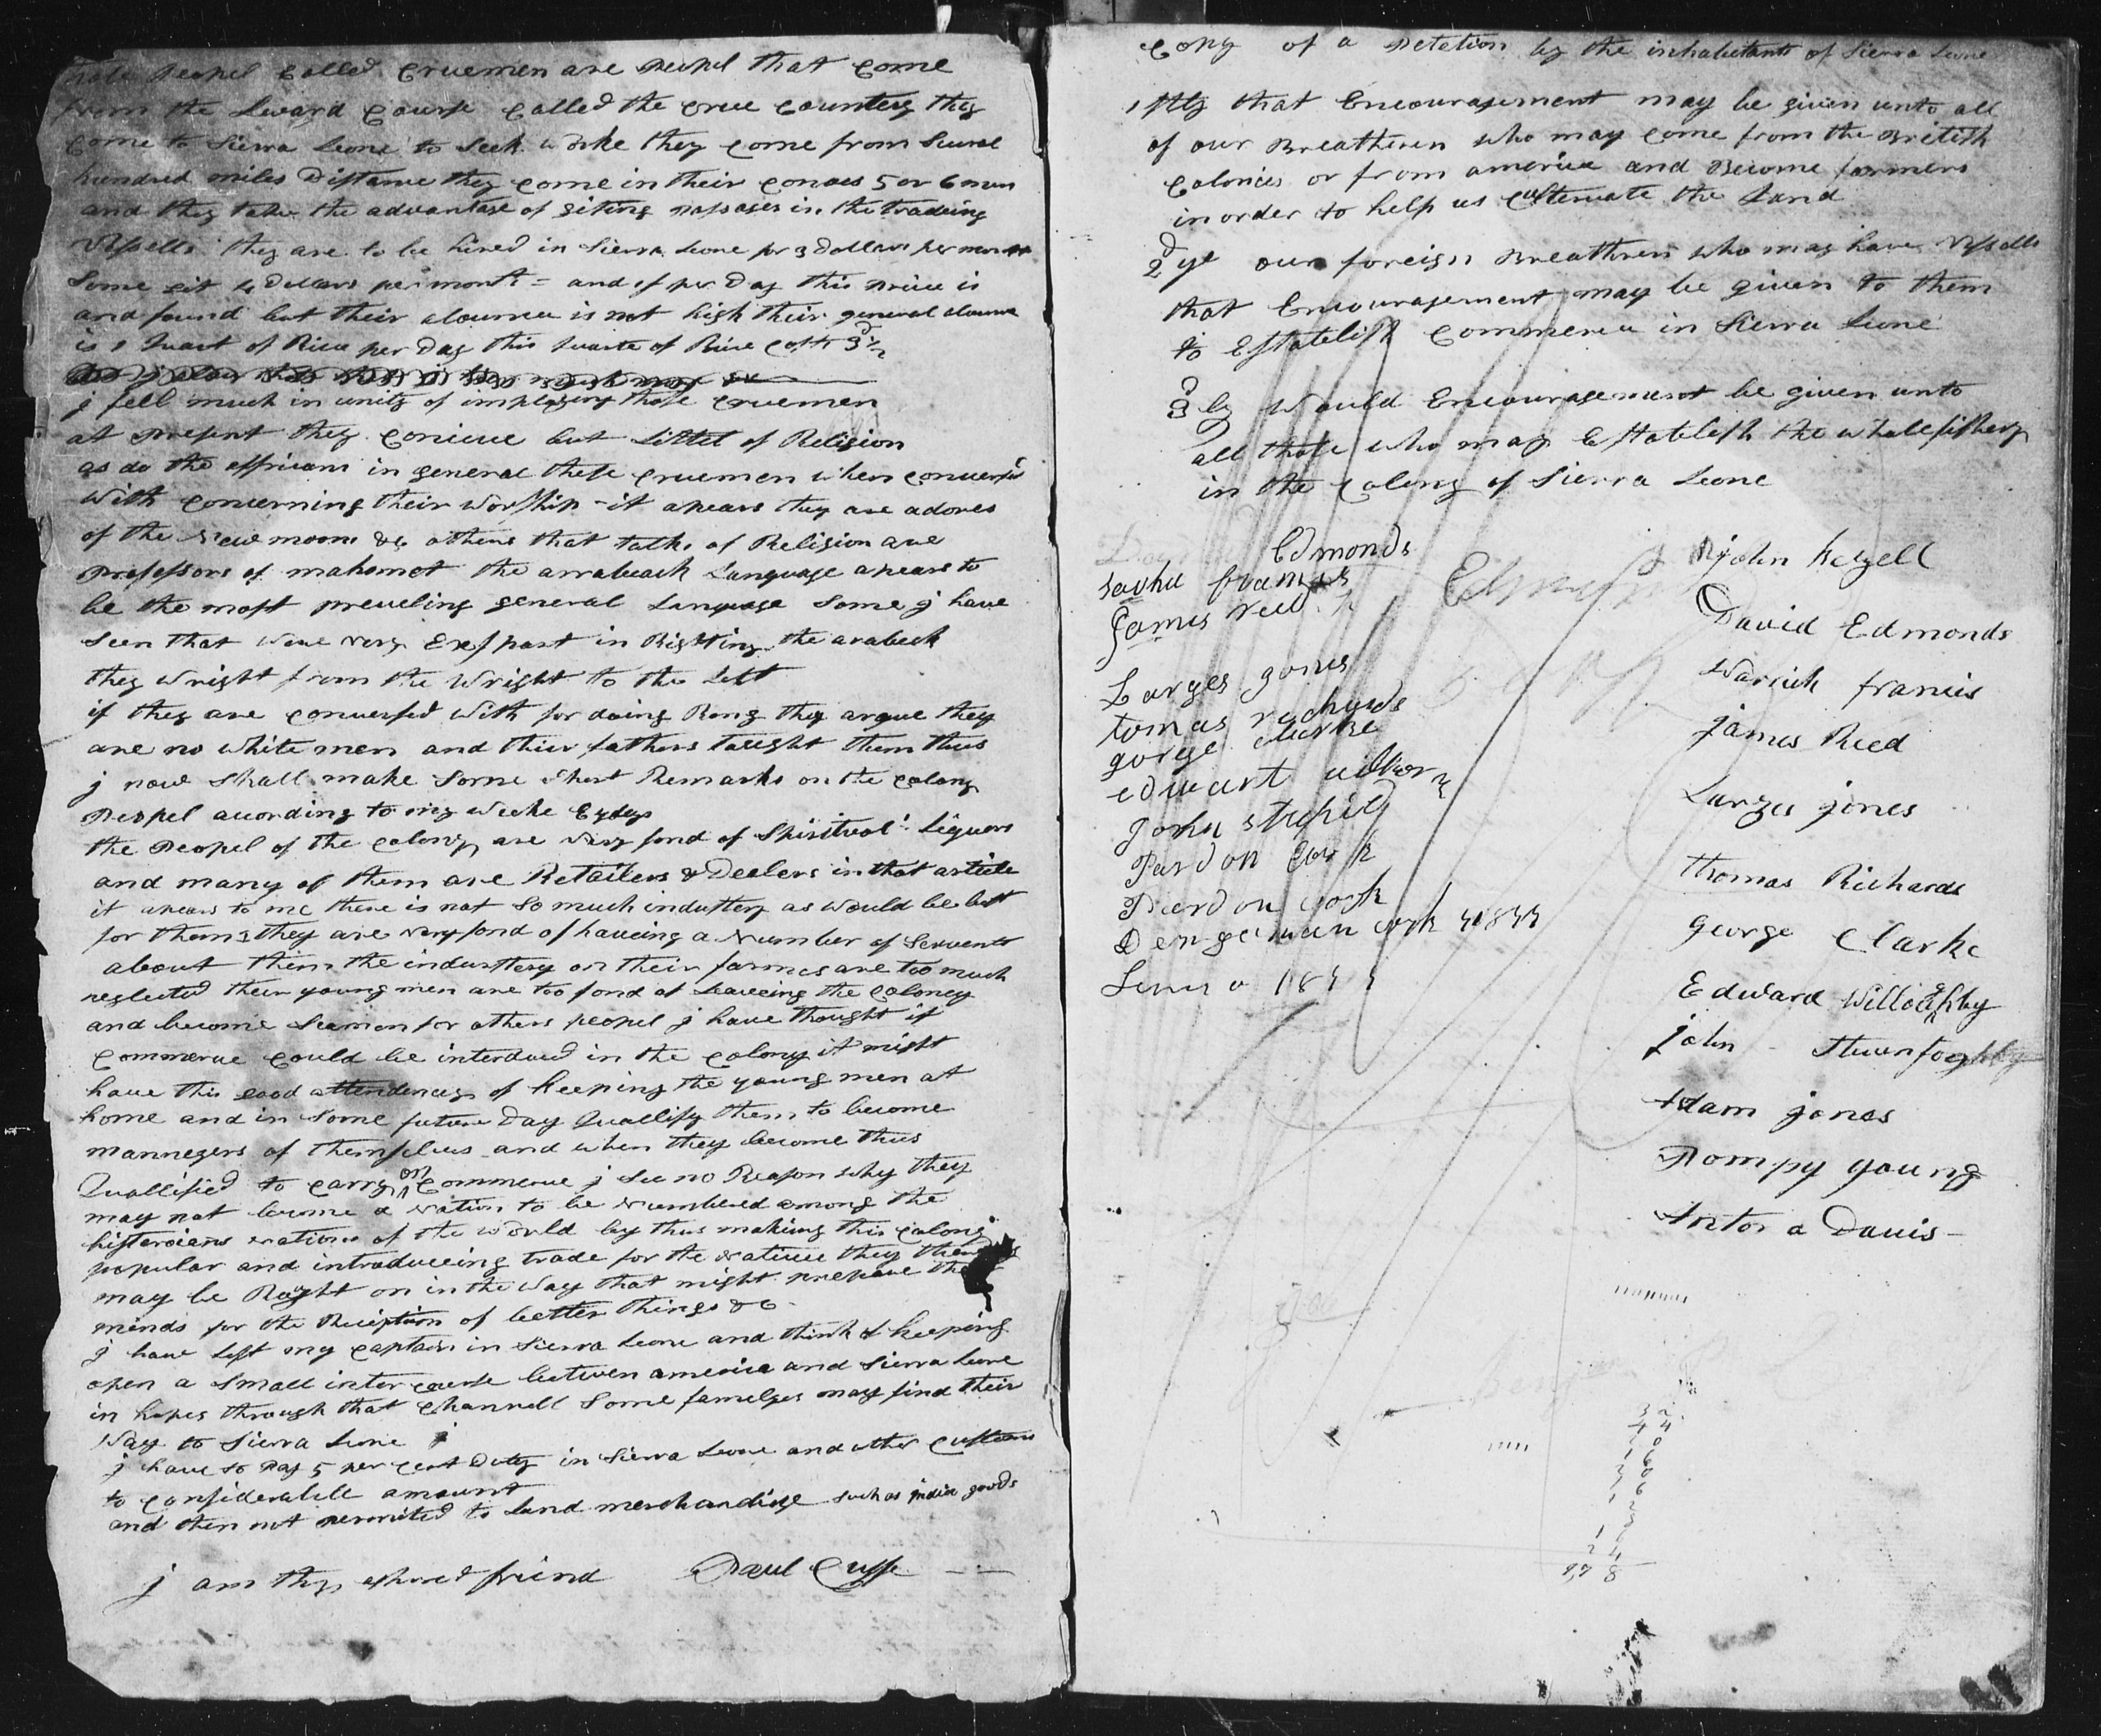 those Peopel Called Cruemen are Peopel that Come
from the Leward Course Called the Crue Countery they
Come to Sierra Leone to Seek worke they come from Sevrel
hundred miles Distance they come in their conoes 5 or 6 men
and they take the advantage of giting passages in the tradeing
Vessells they are to be hired in Sierra Leone for 3 Dollars per month
Some git 4 dollars per month = and per Day this price is
and found but their alounce is not high their general alounce
is 1 Quart of Rice per Day this Quarte of Rice Costs
j fell much in unity of imploying those Cruemen
at present they Conceive but Littel of Religion
as do the affricans in general these Cruemen when converst
with concerning their Worship - it apears they are adores
of the New moons &c others that talks of Religion are
Professors of mahomet the arrabeack Language apears to
be the most preveling general Language Some j have
Seen that were very Exspart in Righting the arabeck
they Wright from the Wright to the Left
if they are conversed with for doing Rong they argue they
are no white men and their fathers taught them thus
j now Shall make Some Short Remarks on the Colony
Peopel acording to my weeke Eydeys
the Peopel of the Colony are very fond of Spiritual Liquors
and many of them are Retailers & Dealers in that article
it apears to me there is not So much industery as would be best
for them they are very fond of haveing a Number of Servents
about them the industery on their farmes are too much
neglected their young men are too fond of Leaveing the Coloney
and become Seamen for others peopel j have thought if
Commerce could be interduced in the Colony it might
have this good attendency of keeping the young men at
home and in Some future Day Quallify them to become
mannegers of themselves and when they become thus
Quallified to carry on Commerce j See no Reason why they
may not become a Nation to be Numbered among the
historians nations of the World by thus making this Colony
popular and introduceing trade for the native they
may be Roght on in the Way that might prepare
minds for the Reception of better things &c
j have Left my Captain in Sierra Leone and think of keeping
open a Small intercourse between america and Sierra Leone
in hopes through that Channell Some famelyes may find their
Way to Sierra Leone
j have to Pay 5 per Cent Duty in Sierra Leone and other Customs
to Considerabell amount
and then not permited to Land merchandise such as india goods
j am thy asshured friend Paul Cuffe
Copy of a Petetion by the inhabetants of Sierra Leone
1stly that Encouragement may be given unto all
of our Breatheren who may come from the British
Colonies or from america and Become farmers
in order to help us Cultervate the Land
2dly our foreign Breathren who may have Vessells
that Encouragement may be given to them
to Establish Commerce in Sierra Leone
3dly Would Encouragement be given unto
all those who may Establish the whale fishery
in the Colony of Sierra Leone
Edmonds
James reed
Larges Jones
tomas
gorge clerke
edwart
Pardon Cook
Pardon Cook
john Kezell
David Edmonds
Warick francis
james Reed
Larzes jones
thomas Richards
george Clarke
Edward Willoughby
john
Adam jones
Pompy young
Anto a Davis